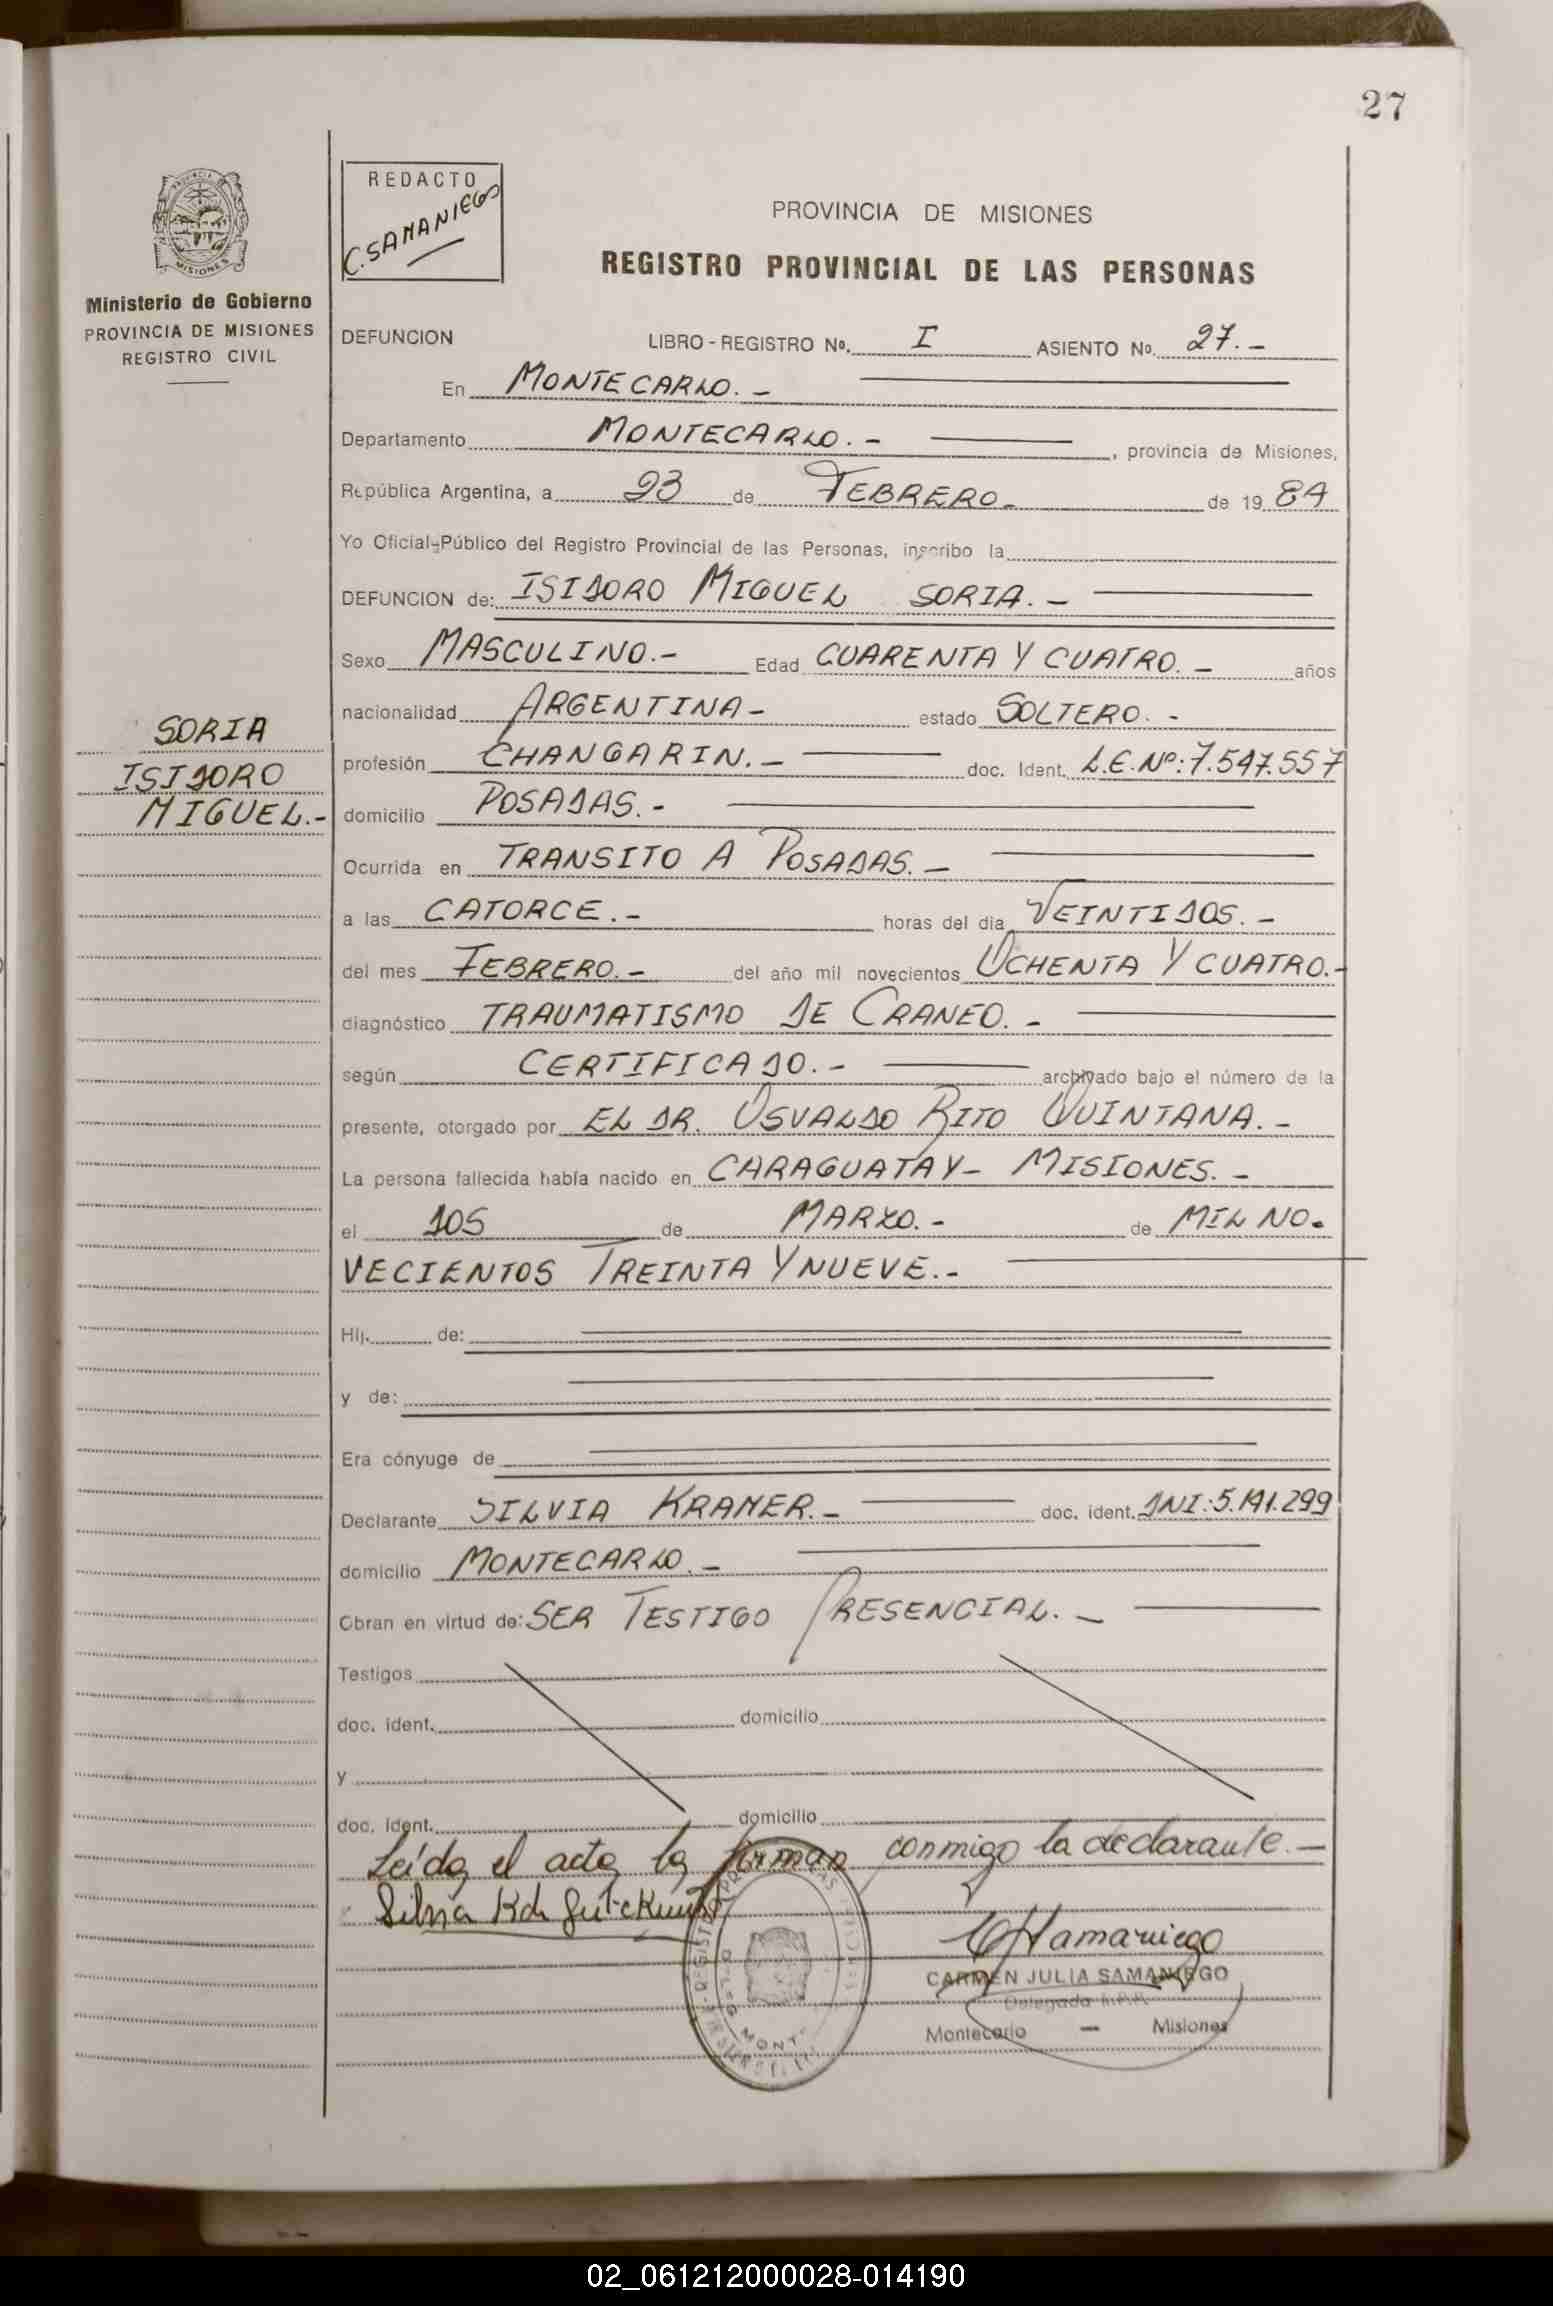 27
REDACTO
C. SAMANIEGO
PROVINCIA DE MISIONES
REGISTRO PROVINCIAL DE LAS PERSONAS
PROVINCIA DE
MISIONES
Ministerio de Gobierno
PROVINCIA DE MISIONES
REGISTRO CIVIL
DEFUNCION LIBRO - REGISTRO Nº. I ASIENTO Nº. 27.-
En MONTECARLO.-
Departamento MONTECARLO.- , provincia de Misiones,
República Argentina, a 23 de FEBRERO- de 19 84
Yo Oficial-Público del Registro Provincial de las Personas, inscribo la
DEFUNCION de: ISIDORO MIGUEL SORIA.-
Sexo MASCULINO.- Edad CUARENTA Y CUATRO.- años
nacionalidad ARGENTINA- estado SOLTERO.-
SORIA
ISIDORO
MIGUEL.-
profesión CHANGARIN.- doc. Ident. L.E.Nº: 7.547.557
domicilio POSADAS.-
Ocurrida en TRANSITO A POSADAS.-
a las CATORCE.- horas del día VEINTIDOS.-
del mes FEBRERO.- del año mil novecientos OCHENTA Y CUATRO.-
diagnóstico TRAUMATISMO DE CRANEO.-
según CERTIFICADO.- archivado bajo el número de la
presente, otorgado por EL DR. OSVALDO RITO QUINTANA.-
La persona fallecida había nacido en CARAGUATAY- MISIONES.-
el DOS de MARZO.- de MIL NO-
VECIENTOS TREINTA Y NUEVE.-
Hij. de:
y de:
Era cónyuge de
Declarante SILVIA KRAMER.- doc. ident. DNI: 5.191.299
domicilio MONTECARLO.-
Obran en virtud de: SER TESTIGO PRESENCIAL.-
Testigos
doc. ident. domicilio
y
doc. ident. domicilio
Leída el acta la firman conmigo la declarante.-
Silvia K de
CSamaniego
CARMEN JULIA SAMANIEGO
Delegada R.P.P.
Montecarlo - Misiones
02_061212000028-014190